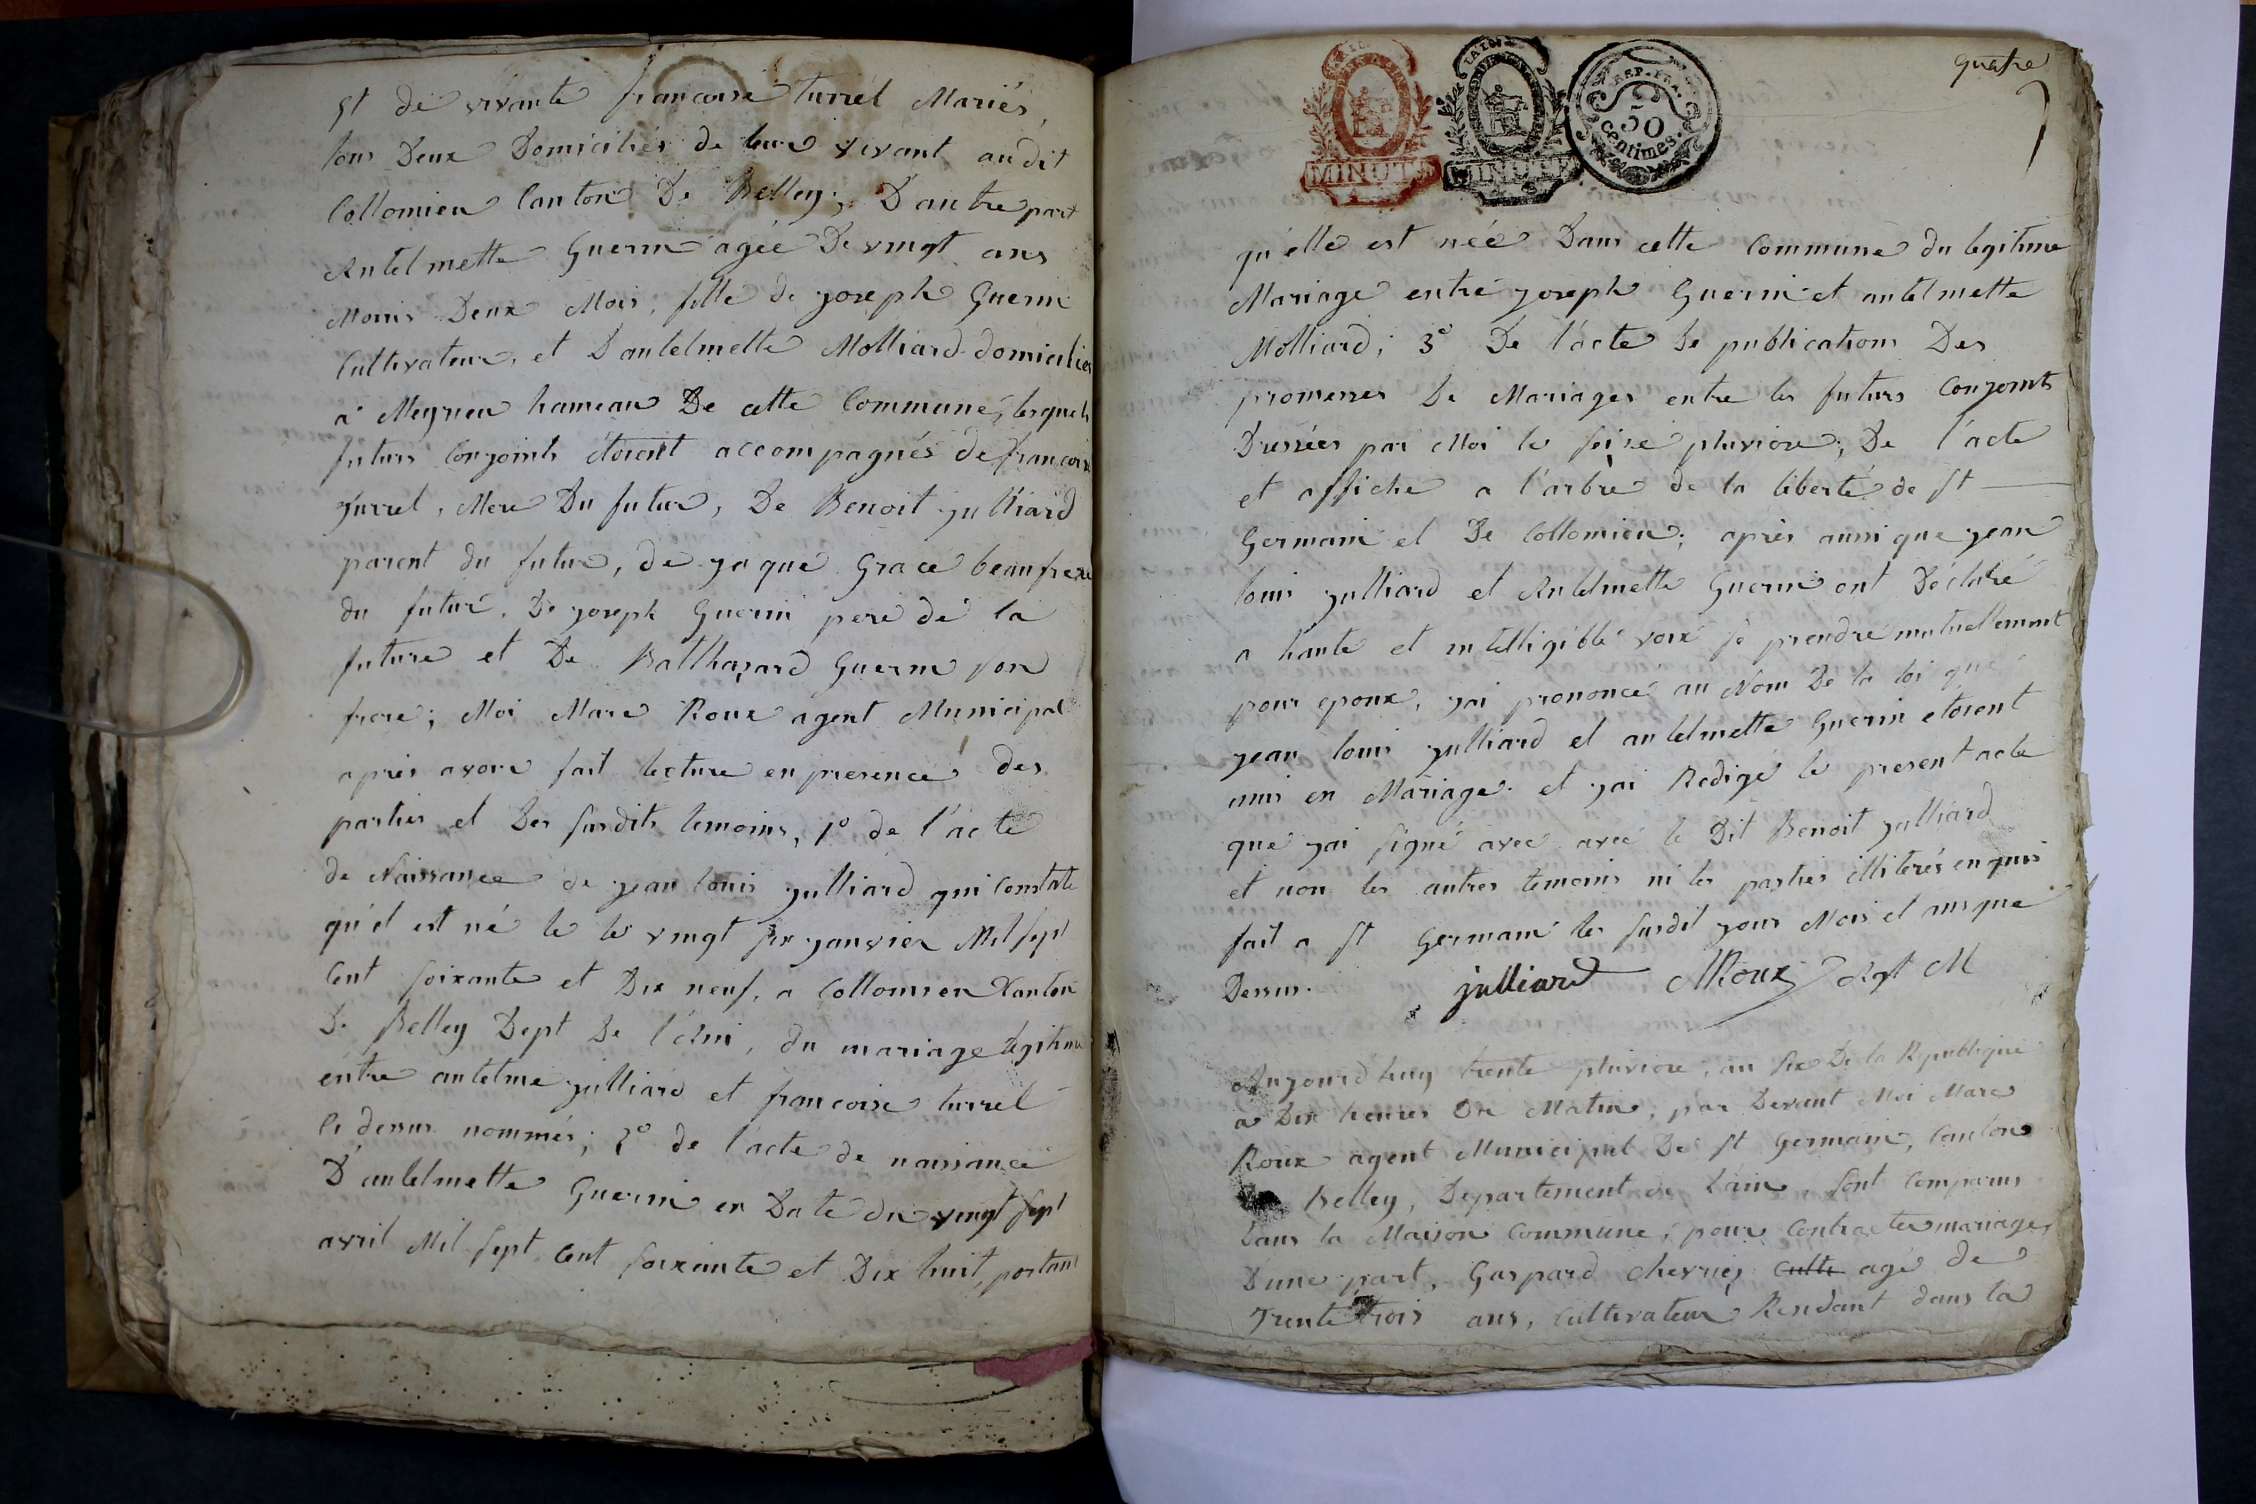 et de vivante francoise turrel Mariés,
tous Deux Domiciliés de leur vivant audit
Collomieu Canton De Belley; D'autre part
Antelmette Guerin agée De vingt ans
Moins Deux Mois, fille de joseph Guerin
Cultivateur, et D'antelmette Molliard domiciliés
a Meyrieu hameau De cette Commune, lesquels
futurs Conjoints étoient accompagnés de francoise
turrel, Mere Du futur, De Benoit julliard
parent du futur, de jaque Grace beaufrere
du futur, De joseph Guerin pere de la
future et De Balthazard Guerin son
frere; Moi Marc Roux agent Municipal
apres avoir fait lecture en presence des
parties et Des susdits temoins, 1º de l'acte
de Naissance de jean louis julliard qui constate
qu'il est né le le vingt six janvier Mil sept
Cent soixante et Dix neuf, a Collomieu Canton
De Belley Dept De l'Ain, du mariage legitime
entre antelme julliard et francoise turrel
Ci dessus nommés; 2º de l'acte de naissance
D'antelmette Guerin en Date du vingt sept
avril Mil sept Cent soixante et Dix huit, portant
quatre
MINUTE
MINUTE
REP. FRA.
50
centimes.
qu'elle est neé Dans cette Commune du legitime
Mariage entre joseph Guerin et antelmette
Molliard; 3º De l'acte De publications Des
promesses De Mariages entre les futurs Conjoints
Dressées par Moi le seize pluviose, De l'acte
et affiche a l'arbre de la liberté de st
Germain et De Collomieu; après aussi que jean
louis julliard et Antelmette Guerin ont Déclaré
a haute et intelligible voix se prendre mutuellement
pour epoux, jai prononcé au Nom De la loi que
jean louis julliard et antelmette Guerin etoient
unis en Mariage. et jai Redigé le present acte
que jai signé avec avec le Dit Benoit julliard
et non les autres temoins ni les parties illiterés enquis
fait a st Germain les susdit jour Mois et ans que
Dessus. julliard MRoux Agt M
Aujourd huy trente pluviose, an six De la Republique
a Dix heures De Matin, par Devant Moi Marc
Roux agent Municipal De st Germain, Canton
De Belley, Departement de Lain, sont Comparus
Dans la Maison Commune, pour Contracter mariage,
Dune part, Gaspard chervier culti agé de
Trente trois ans, Cultivateur Residant dans la